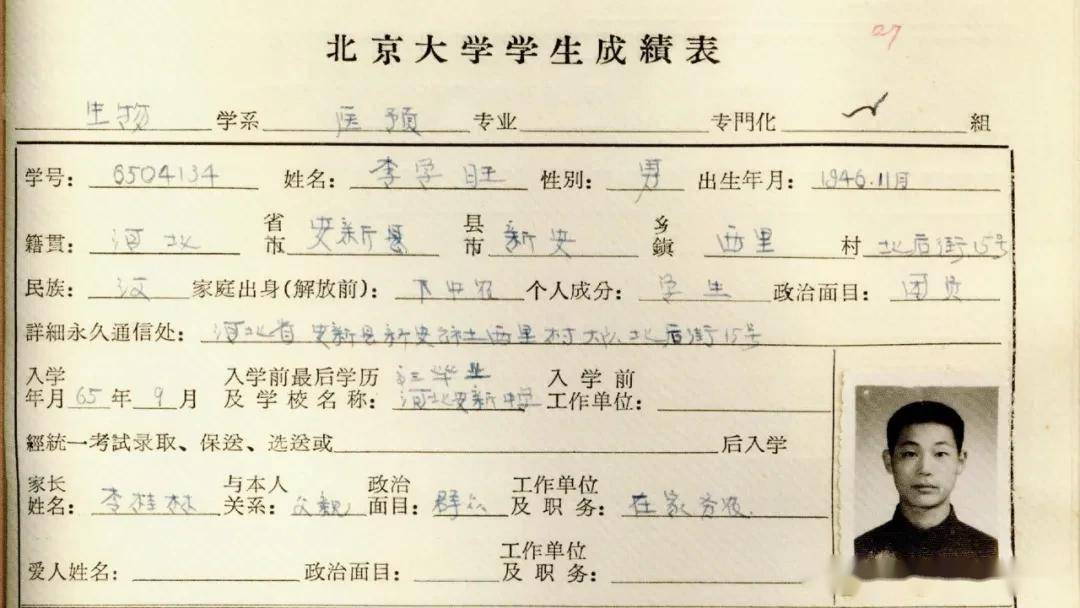 27
北京大学学生成績表
生物 学系 医预 专业 专門化 组
学号: 6504134 姓名: 李学旺 性別: 男 出生年月: 1946.11月
籍貫: 河北 省市 安新县 县市 新安 乡鎮 西里 村 北后街15号
民族: 汉 家庭出身(解放前): 下中农 个人成分: 学生 政治面目: 团员
詳細永久通信处: 河北省安新县新安 西里村 北后街15号
入学年月 65年 9月 入学前最后学历及学校名称: 高三毕业 河北安新中学 入学前工作单位:
經統一考試录取、保送、选送或 后入学
家长姓名: 李桂林 与本人关系: 父亲 政治面目: 群众 工作单位及职务: 在家务农.
爱人姓名: 政治面目: 工作单位及职务: